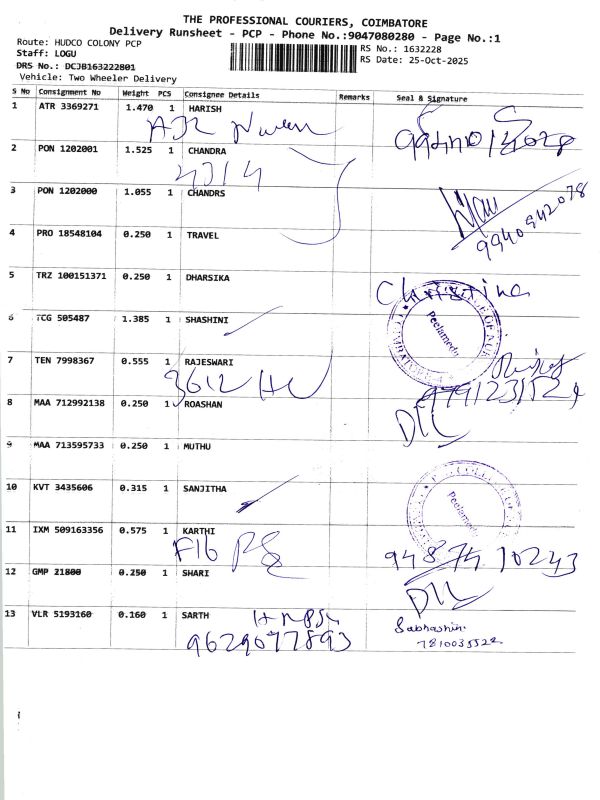 THE PROFESSIONAL COURIERS, COIMBATORE
Delivery Runsheet - PCP - Phone No.:9047080280 - Page No.:1
Route: HUDCO COLONY PCP
RS No.: 1632228
Staff: LOGU
RS Date: 25-Oct-2025
DRS No.: DCJB163222801
Vehicle: Two Wheeler Delivery
S No Consignment No Weight PCS Consignee Details Remarks Seal & Signature
1 ATR 3369271 1.470 1 HARISH
2 PON 1202001 1.525 1 CHANDRA
4314
3 PON 1202000 1.055 1 CHANDRS
9940942078
4 PRO 18548104 0.250 1 TRAVEL
5 TRZ 100151371 0.250 1 DHARSIKA
Christina
6 TCG 505487 1.385 1 SHASHINI
Peelamedu
7 TEN 7998367 0.555 1 RAJESWARI
3612
8 MAA 712992138 0.250 1 ROASHAN
9 MAA 713595733 0.250 1 MUTHU
10 KVT 3435606 0.315 1 SANJITHA
Peelamedu
11 IXM 509163356 0.575 1 KARTHI
F16
9487410243
12 GMP 21800 0.250 1 SHARI
13 VLR 5193160 0.160 1 SARTH
9629077893
7810035522